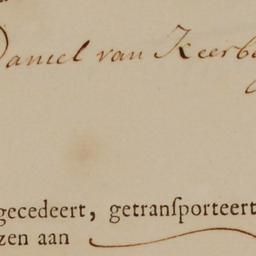 Daniel van Keerb
gecedeert, getranſporteert
zen aan